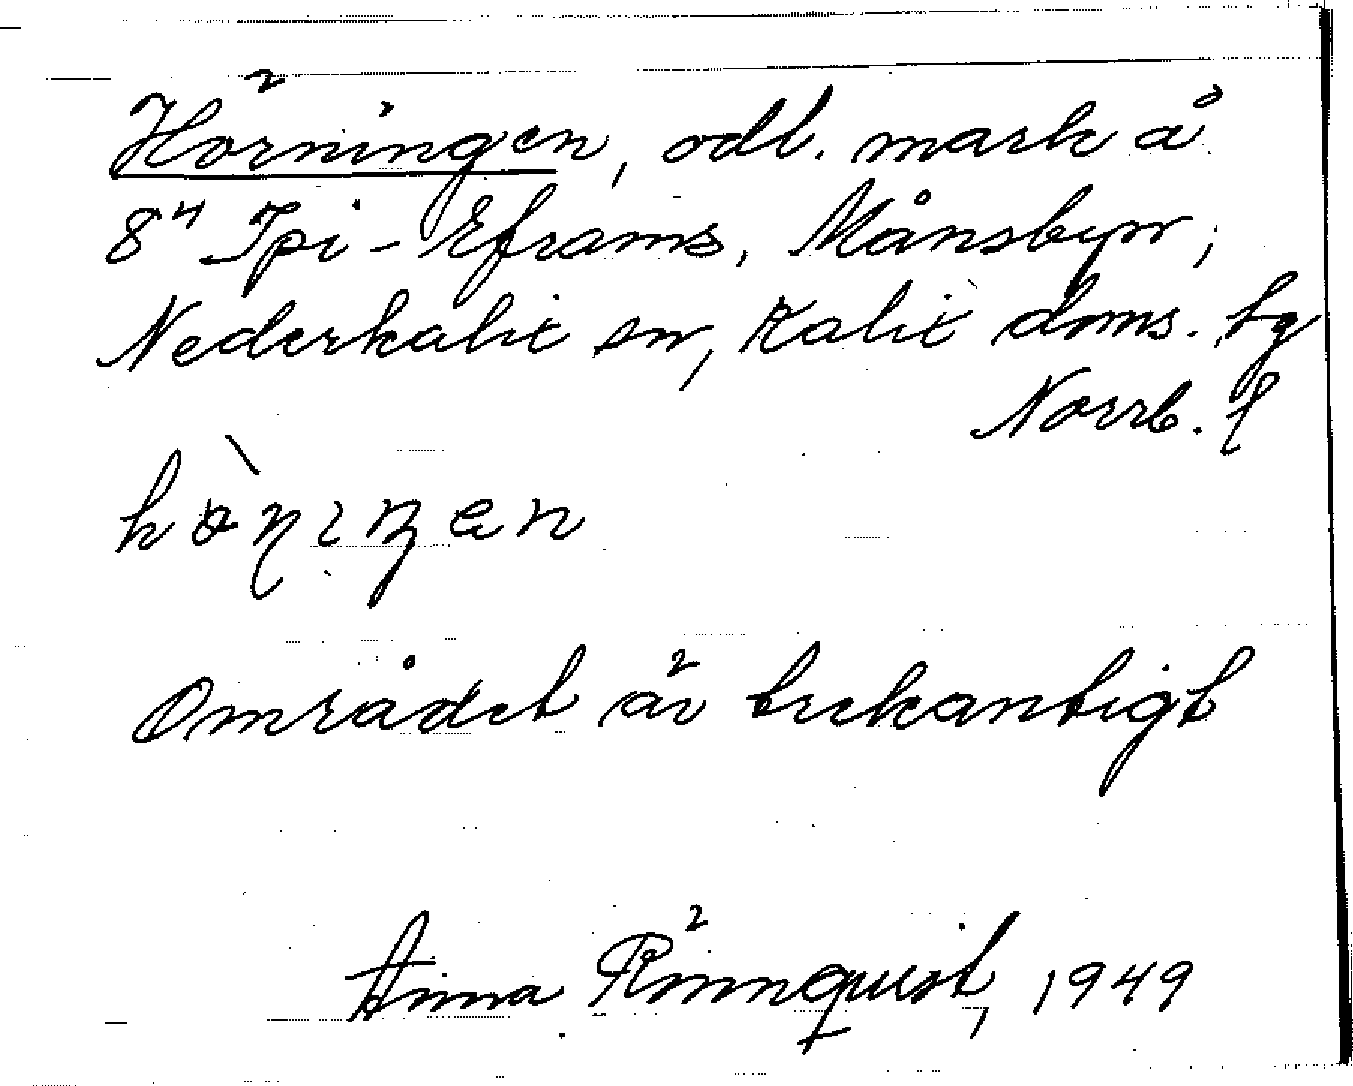 Hörningen, odl. mark å
8⁴ Ipi-Eframs, Månsbyn,
Nederkalix sn, Kalix doms. tg
Norrb. l
Området är trekantigt
Anna Rönnquist, 1949